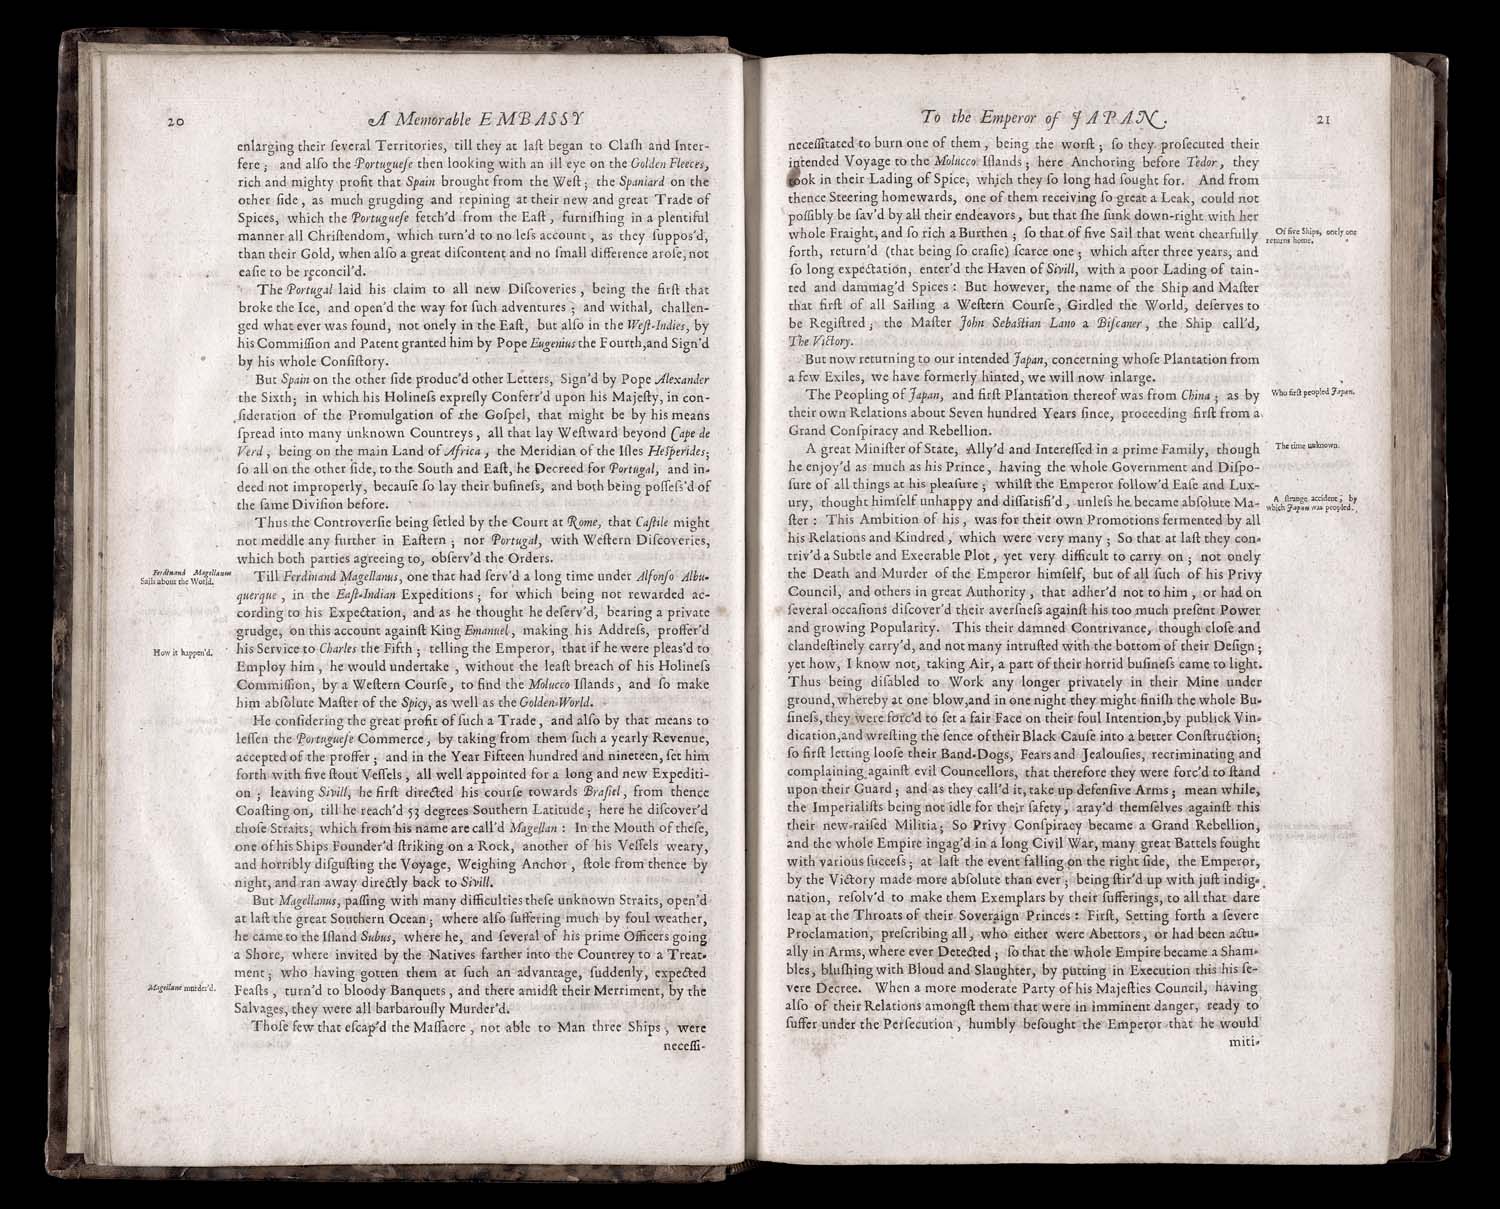 20
A Memorable EMBASSY
enlarging their ſeveral Territories, till they at laſt began to Claſh and Inter-
fere; and alſo the Portugueſe then looking with an ill eye on the Golden Fleeces,
rich and mighty profit that Spain brought from the Weſt; the Spaniard on the
other ſide, as much grudging and repining at their new and great Trade of
Spices, which the Portugueſe fetch'd from the Eaſt, furniſhing in a plentiful
manner all Chriſtendom, which turn'd to no leſs account, as they ſuppos'd,
than their Gold, when alſo a great diſcontent and no ſmall difference aroſe, not
eaſie to be reconcil'd.
The Portugal laid his claim to all new Diſcoveries, being the firſt that
broke the Ice, and open'd the way for ſuch adventures; and withal, challen-
ged what ever was found, not onely in the Eaſt, but alſo in the Weſt-Indies, by
his Commiſſion and Patent granted him by Pope Eugenius the Fourth, and Sign'd
by his whole Conſiſtory.
But Spain on the other ſide produc'd other Letters, Sign'd by Pope Alexander
the Sixth; in which his Holineſs expreſly Conferr'd upon his Majeſty, in con-
ſideration of the Promulgation of the Goſpel, that might be by his means
ſpread into many unknown Countreys, all that lay Weſtward beyond Cape de
Verd, being on the main Land of Africa, the Meridian of the Iſles Heſperides;
ſo all on the other ſide, to the South and Eaſt, he Decreed for Portugal, and in-
deed not improperly, becauſe ſo lay their buſineſs, and both being poſſeſs'd of
the ſame Diviſion before.
Thus the Controverſie being ſetled by the Court at Rome, that Caſtile might
not meddle any further in Eaſtern; nor Portugal, with Weſtern Diſcoveries,
which both parties agreeing to, obſerv'd the Orders.
Ferdinand Magellanus
Sails about the World.
Till Ferdinand Magellanus, one that had ſerv'd a long time under Alfonſo Albu-
querque, in the Eaſt-Indian Expeditions; for which being not rewarded ac-
cording to his Expectation, and as he thought he deſerv'd, bearing a private
grudge, on this account againſt King Emanuel, making his Addreſs, proffer'd
How it happen'd.
his Service to Charles the Fifth; telling the Emperor, that if he were pleas'd to
Employ him, he would undertake, without the leaſt breach of his Holineſs
Commiſſion, by a Weſtern Courſe, to find the Molucco Iſlands, and ſo make
him abſolute Maſter of the Spicy, as well as the Golden-World.
He conſidering the great profit of ſuch a Trade, and alſo by that means to
leſſen the Portugueſe Commerce, by taking from them ſuch a yearly Revenue,
accepted of the proffer; and in the Year Fifteen hundred and nineteen, ſet him
forth with five ſtout Veſſels, all well appointed for a long and new Expediti-
on; leaving Sivill, he firſt directed his courſe towards Braſiel, from thence
Coaſting on, till he reach'd 53 degrees Southern Latitude; here he diſcover'd
thoſe Straits, which from his name are call'd Magellan: In the Mouth of theſe,
one of his Ships Founder'd ſtriking on a Rock, another of his Veſſels weary,
and horribly diſguſting the Voyage, Weighing Anchor, ſtole from thence by
night, and ran away directly back to Sivill.
But Magellanus, paſſing with many difficulties theſe unknown Straits, open'd
at laſt the great Southern Ocean; where alſo ſuffering much by foul weather,
he came to the Iſland Subus, where he, and ſeveral of his prime Officers going
a Shore, where invited by the Natives farther into the Countrey to a Treat-
ment; who having gotten them at ſuch an advantage, ſuddenly, expected
Magellane murder'd.
Feaſts, turn'd to bloody Banquets, and there amidſt their Merriment, by the
Salvages, they were all barbarouſly Murder'd.
Thoſe few that eſcap'd the Maſſacre, not able to Man three Ships, were
neceſſi-
To the Emperor of JAPAN.
21
neceſſitated to burn one of them, being the worſt; ſo they proſecuted their
intended Voyage to the Molucco Iſlands; here Anchoring before Tedor, they
took in their Lading of Spice, which they ſo long had ſought for. And from
thence Steering homewards, one of them receiving ſo great a Leak, could not
poſſibly be ſav'd by all their endeavors, but that ſhe ſunk down-right with her
whole Fraight, and ſo rich a Burthen; ſo that of five Sail that went chearfully
Of five Ships, onely one
returns home.
forth, return'd (that being ſo craſie) ſcarce one; which after three years, and
ſo long expectation, enter'd the Haven of Sivill, with a poor Lading of tain-
ted and dammag'd Spices: But however, the name of the Ship and Maſter
that firſt of all Sailing a Weſtern Courſe, Girdled the World, deſerves to
be Regiſtred; the Maſter John Sebaſtian Lano a Biſcaner, the Ship call'd,
The Victory.
But now returning to our intended Japan, concerning whoſe Plantation from
a few Exiles, we have formerly hinted, we will now inlarge.
The Peopling of Japan, and firſt Plantation thereof was from China; as by
Who firſt peopled Japan.
their own Relations about Seven hundred Years ſince, proceeding firſt from a
Grand Conſpiracy and Rebellion.
A great Miniſter of State, Ally'd and Intereſſed in a prime Family, though
The time unknown.
he enjoy'd as much as his Prince, having the whole Government and Diſpo-
ſure of all things at his pleaſure; whilſt the Emperor follow'd Eaſe and Lux-
ury, thought himſelf unhappy and diſſatisfi'd, unleſs he became abſolute Ma-
A ſtrange accident, by
which Japan was peopled.
ſter: This Ambition of his, was for their own Promotions fermented by all
his Relations and Kindred, which were very many; So that at laſt they con-
triv'd a Subtle and Execrable Plot, yet very difficult to carry on; not onely
the Death and Murder of the Emperor himſelf, but of all ſuch of his Privy
Council, and others in great Authority, that adher'd not to him, or had on
ſeveral occaſions diſcover'd their averſneſs againſt his too much preſent Power
and growing Popularity. This their damned Contrivance, though cloſe and
clandeſtinely carry'd, and not many intruſted with the bottom of their Deſign;
yet how, I know not, taking Air, a part of their horrid buſineſs came to light.
Thus being diſabled to Work any longer privately in their Mine under
ground, whereby at one blow, and in one night they might finiſh the whole Bu-
ſineſs, they were forc'd to ſet a fair Face on their foul Intention, by publick Vin-
dication, and wreſting the ſence of their Black Cauſe into a better Conſtruction;
ſo firſt letting looſe their Band-Dogs, Fears and Jealouſies, recriminating and
complaining againſt evil Councellors, that therefore they were forc'd to ſtand
upon their Guard; and as they call'd it, take up defenſive Arms; mean while,
the Imperialiſts being not idle for their ſafety, aray'd themſelves againſt this
their new-raiſed Militia; So Privy Conſpiracy became a Grand Rebellion,
and the whole Empire ingag'd in a long Civil War, many great Battels fought
with various ſucceſs; at laſt the event falling on the right ſide, the Emperor,
by the Victory made more abſolute than ever; being ſtir'd up with juſt indig-
nation, reſolv'd to make them Exemplars by their ſufferings, to all that dare
leap at the Throats of their Soveraign Princes: Firſt, Setting forth a ſevere
Proclamation, preſcribing all, who either were Abettors, or had been actu-
ally in Arms, where ever Detected; ſo that the whole Empire became a Sham-
bles, bluſhing with Bloud and Slaughter, by putting in Execution this his ſe-
vere Decree. When a more moderate Party of his Majeſties Council, having
alſo of their Relations amongſt them that were in imminent danger, ready to
ſuffer under the Perſecution, humbly beſought the Emperor that he would
miti-